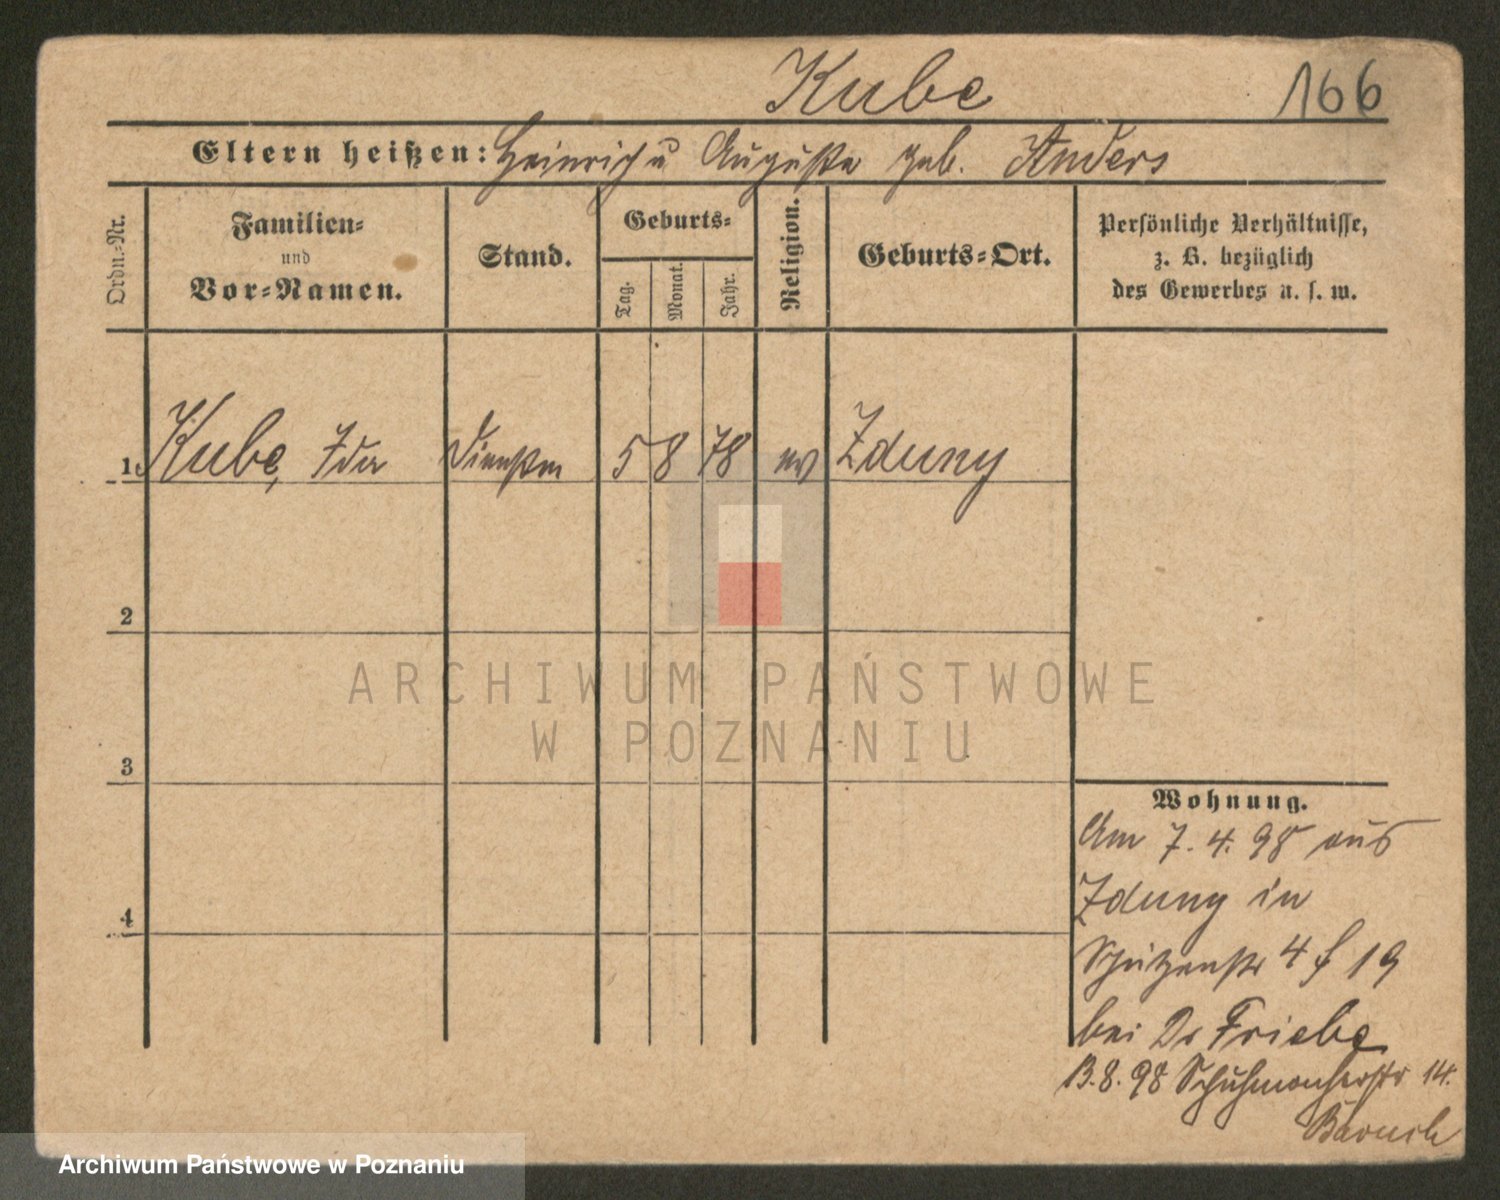 Kube 166
Eltern heißen: Heinrich u Auguste geb. Anders
Ordn.-Nr.
Familien-
und
Vor-Namen.
Stand.
Geburts-
Tag.
Monat.
Jahr.
Religion.
Geburts-Ort.
Persönliche Verhältnisse,
z. B. bezüglich
des Gewerbes u. s. w.
1. Kube, Ida Dienstm 5 8 78 ev Zduny
2
3
4
ARCHIWUM PAŃSTWOWE
W POZNANIU
Wohnung.
Am 7. 4. 98 aus
Zduny in
Schützenstr 4 f 19
bei Dr Friebe
13.8.98 Schuhmacherstr 14.
Baruch
Archiwum Państwowe w Poznaniu